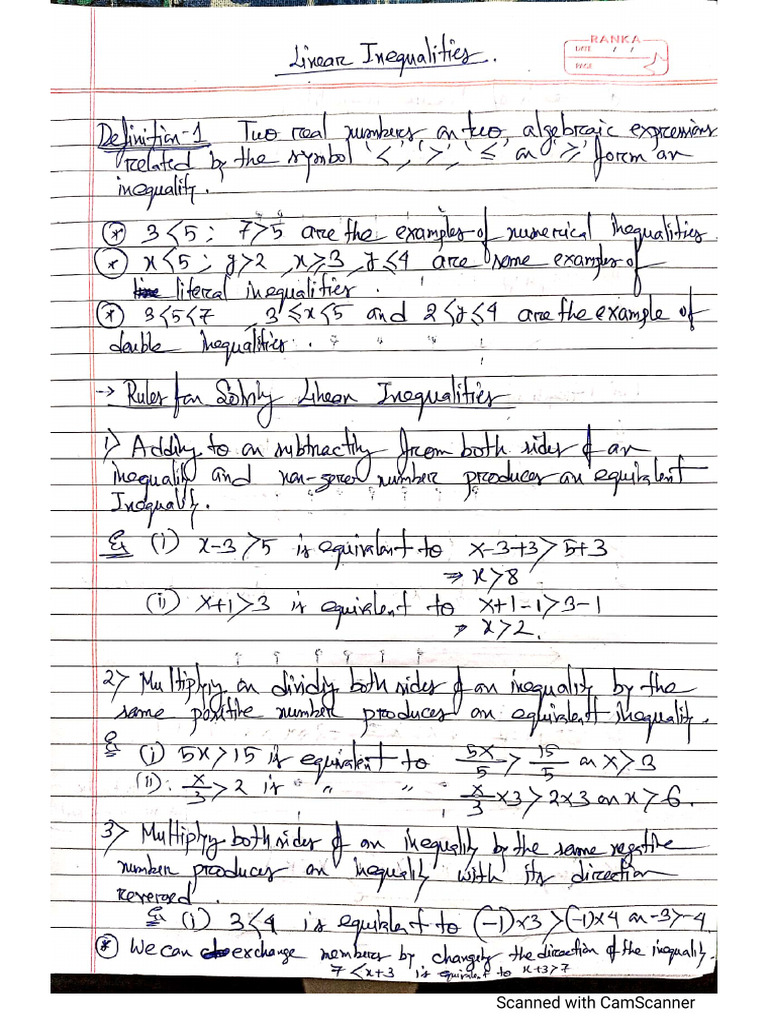 RANKA
DATE / /
PAGE
Linear Inequalities.
Definition-1 Two real numbers or two algebraic expressions
related by the symbol '<', '>', '≤' or '≥' form an
inequality.
* 3<5; 7>5 are the examples of numerical inequalities.
* x<5; y>2, x≥3, y≤4 are some examples of
literal inequalities.
* 3<5<7 3≤x<5 and 2<y≤4 are the example of
double inequalities.
→ Rules for Solving Linear Inequalities
1) Adding to or subtracting from both sides of an
inequality and non-zero number produces an equivalent
Inequality.
Ex (i) x-3>5 is equivalent to x-3+3>5+3
⇒ x>8
(ii) x+1>3 is equivalent to x+1-1>3-1
⇒ x>2.
2) Multiplying or dividing both sides of an inequality by the
same positive number produces an equivalent inequality.
Ex (i) 5x>15 is equivalent to 5x/5 > 15/5 or x>3
(ii). x/3 > 2 is " " " x/3 ×3 > 2×3 or x > 6.
3) Multiply both sides of an inequality by the same negative
number produces an inequality with its direction
reversed.
Ex (i) 3<4 is equivalent to (-1)×3 > (-1)×4 or -3>-4.
* We can exchange members by changing the direction of the inequality.
7 < x+3 is equivalent to x+3>7
Scanned with CamScanner